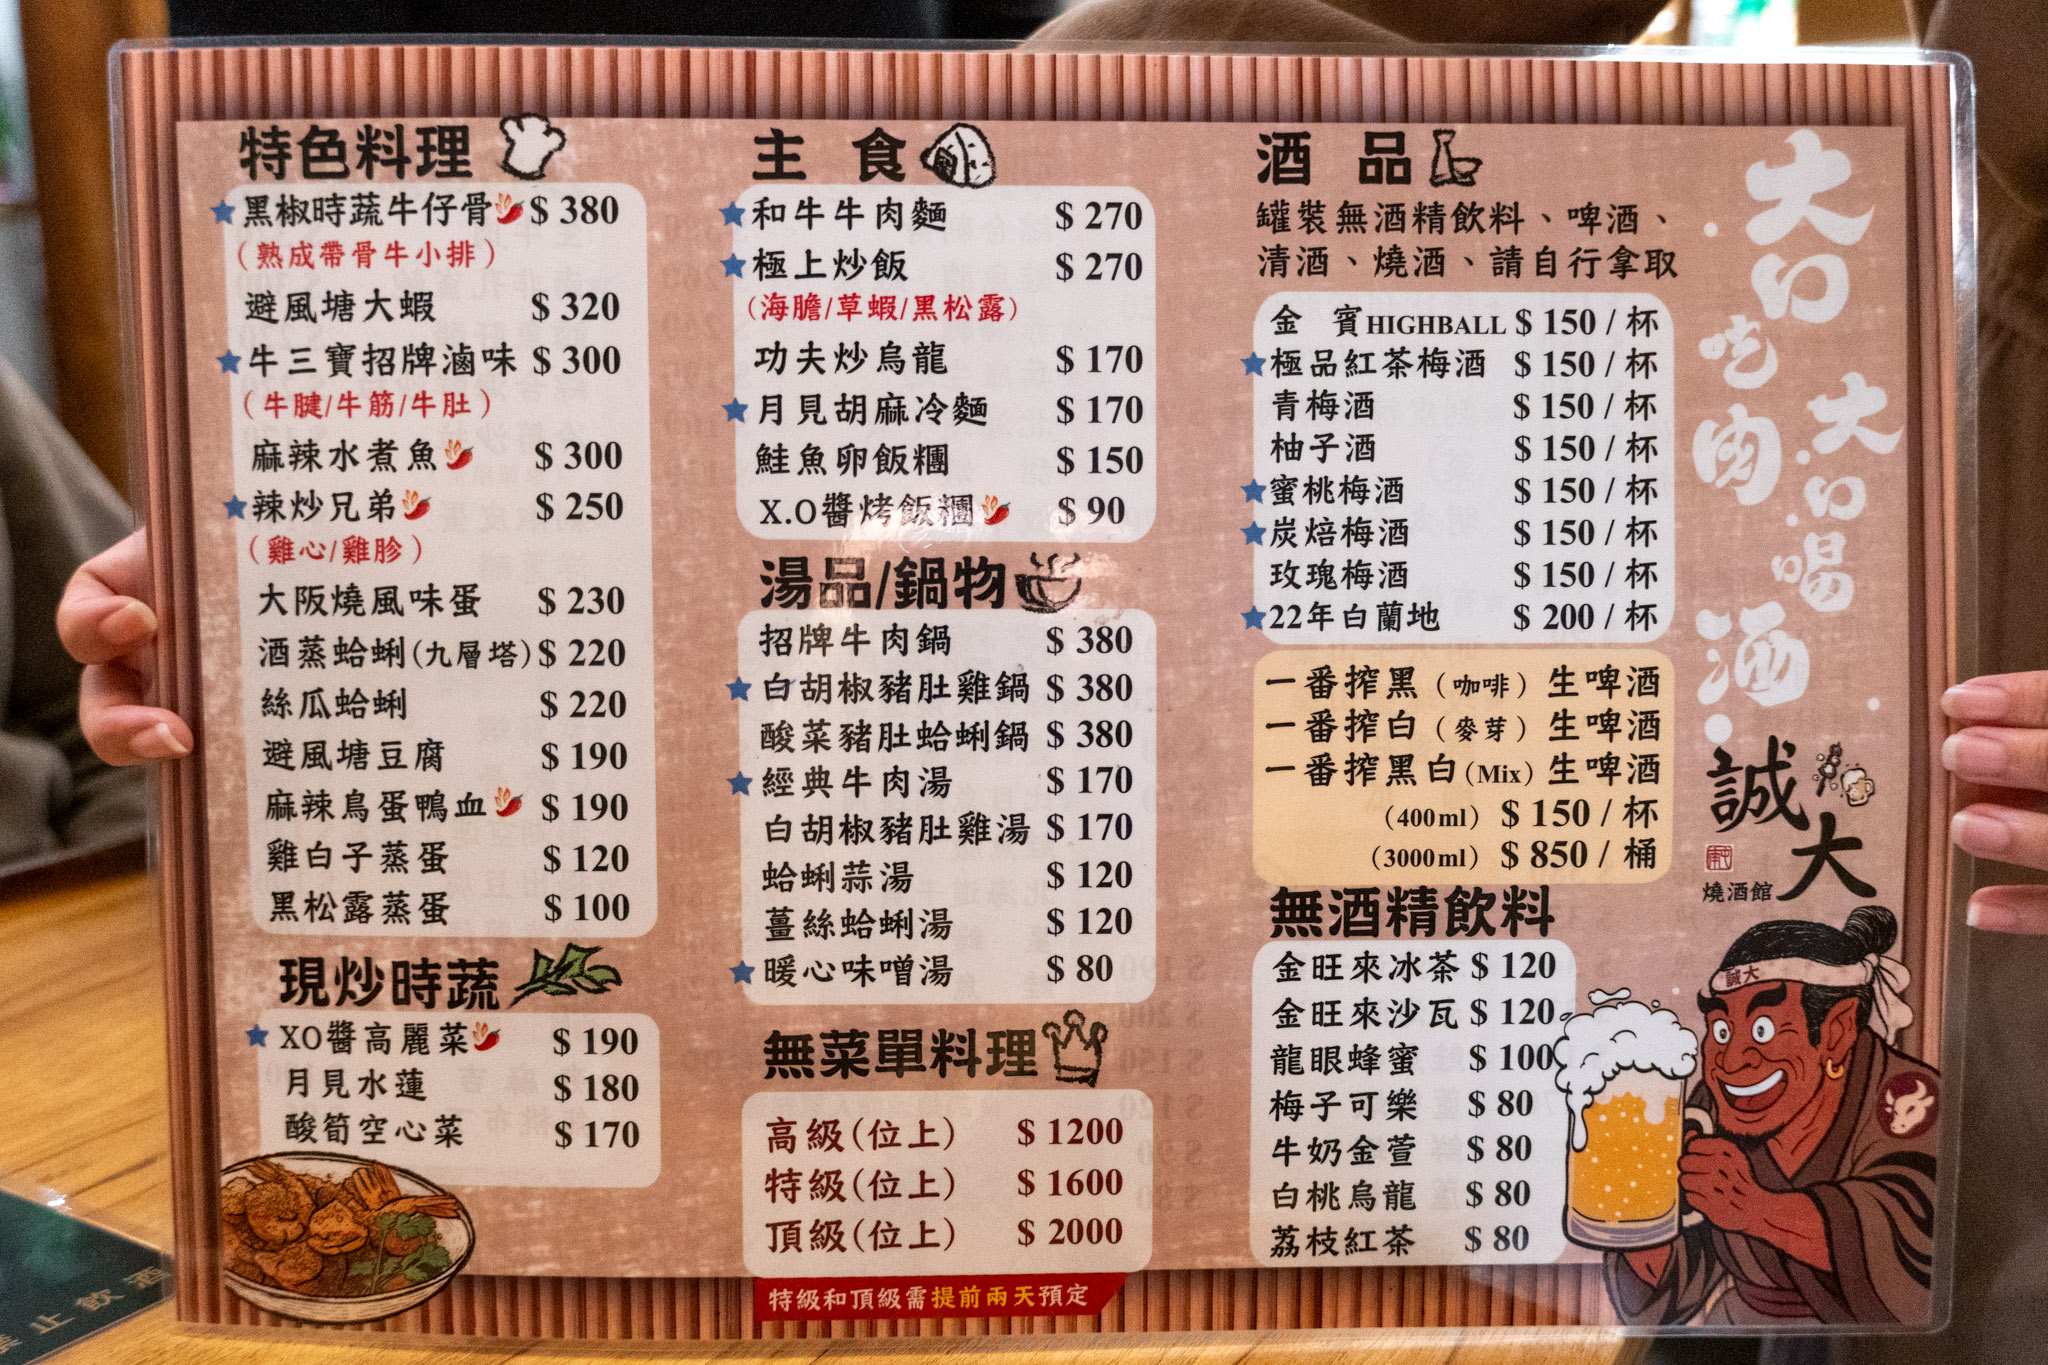 特色料理
黑椒時蔬牛仔骨 $ 380
(熟成帶骨牛小排)
避風塘大蝦 $ 320
牛三寶招牌滷味 $ 300
(牛腱/牛筋/牛肚)
麻辣水煮魚 $ 300
辣炒兄弟 $ 250
(雞心/雞胗)
大阪燒風味蛋 $ 230
酒蒸蛤蜊(九層塔) $ 220
絲瓜蛤蜊 $ 220
避風塘豆腐 $ 190
麻辣鳥蛋鴨血 $ 190
雞白子蒸蛋 $ 120
黑松露蒸蛋 $ 100
現炒時蔬
XO醬高麗菜 $ 190
月見水蓮 $ 180
酸筍空心菜 $ 170
主食
和牛牛肉麵 $ 270
極上炒飯 $ 270
(海膽/草蝦/黑松露)
功夫炒烏龍 $ 170
月見胡麻冷麵 $ 170
鮭魚卵飯糰 $ 150
X.O醬烤飯糰 $ 90
湯品/鍋物
招牌牛肉鍋 $ 380
白胡椒豬肚雞鍋 $ 380
酸菜豬肚蛤蜊鍋 $ 380
經典牛肉湯 $ 170
白胡椒豬肚雞湯 $ 170
蛤蜊蒜湯 $ 120
薑絲蛤蜊湯 $ 120
暖心味噌湯 $ 80
無菜單料理
高級(位上) $ 1200
特級(位上) $ 1600
頂級(位上) $ 2000
特級和頂級需提前兩天預定
酒品
罐裝無酒精飲料、啤酒、
清酒、燒酒、請自行拿取
金賓HIGHBALL $ 150 / 杯
極品紅茶梅酒 $ 150 / 杯
青梅酒 $ 150 / 杯
柚子酒 $ 150 / 杯
蜜桃梅酒 $ 150 / 杯
炭焙梅酒 $ 150 / 杯
玫瑰梅酒 $ 150 / 杯
22年白蘭地 $ 200 / 杯
一番搾黑(咖啡)生啤酒
一番搾白(麥芽)生啤酒
一番搾黑白(Mix)生啤酒
(400ml) $ 150 / 杯
(3000ml) $ 850 / 桶
無酒精飲料
金旺來冰茶 $ 120
金旺來沙瓦 $ 120
龍眼蜂蜜 $ 100
梅子可樂 $ 80
牛奶金萱 $ 80
白桃烏龍 $ 80
荔枝紅茶 $ 80
大口吃肉
大口喝酒
誠大
燒酒館
誠大
止飲酒